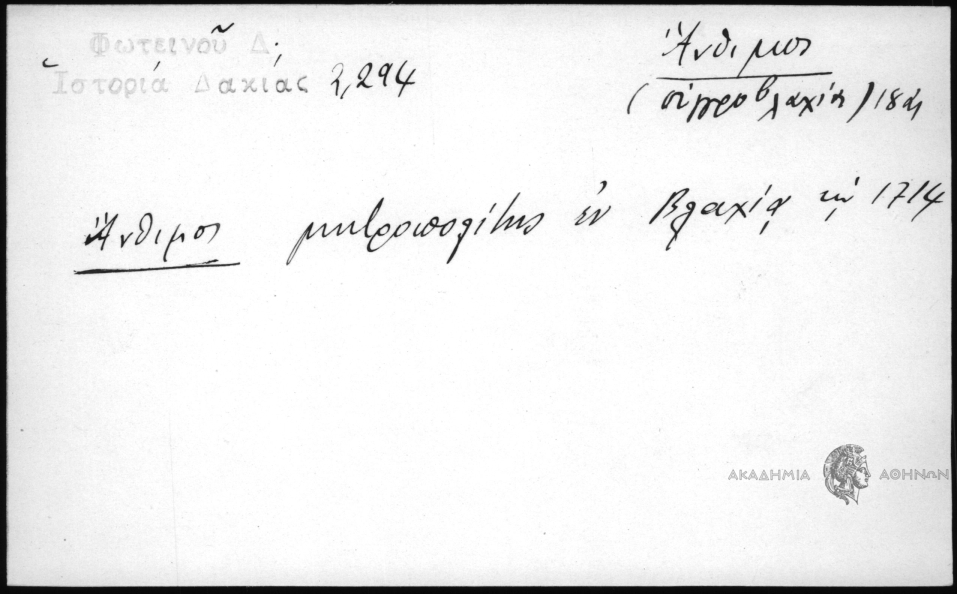 Φωτεινοῦ Δ.
Ἱστορία Δακίας 2,294
Ἄνθιμος
(οὑγγροβλαχία) 18 αἰ
Ἄνθιμος μητροπολίτης ἐν Βλαχίᾳ τῷ 1714
ΑΚΑΔΗΜΙΑ ΑΘΗΝΩΝ